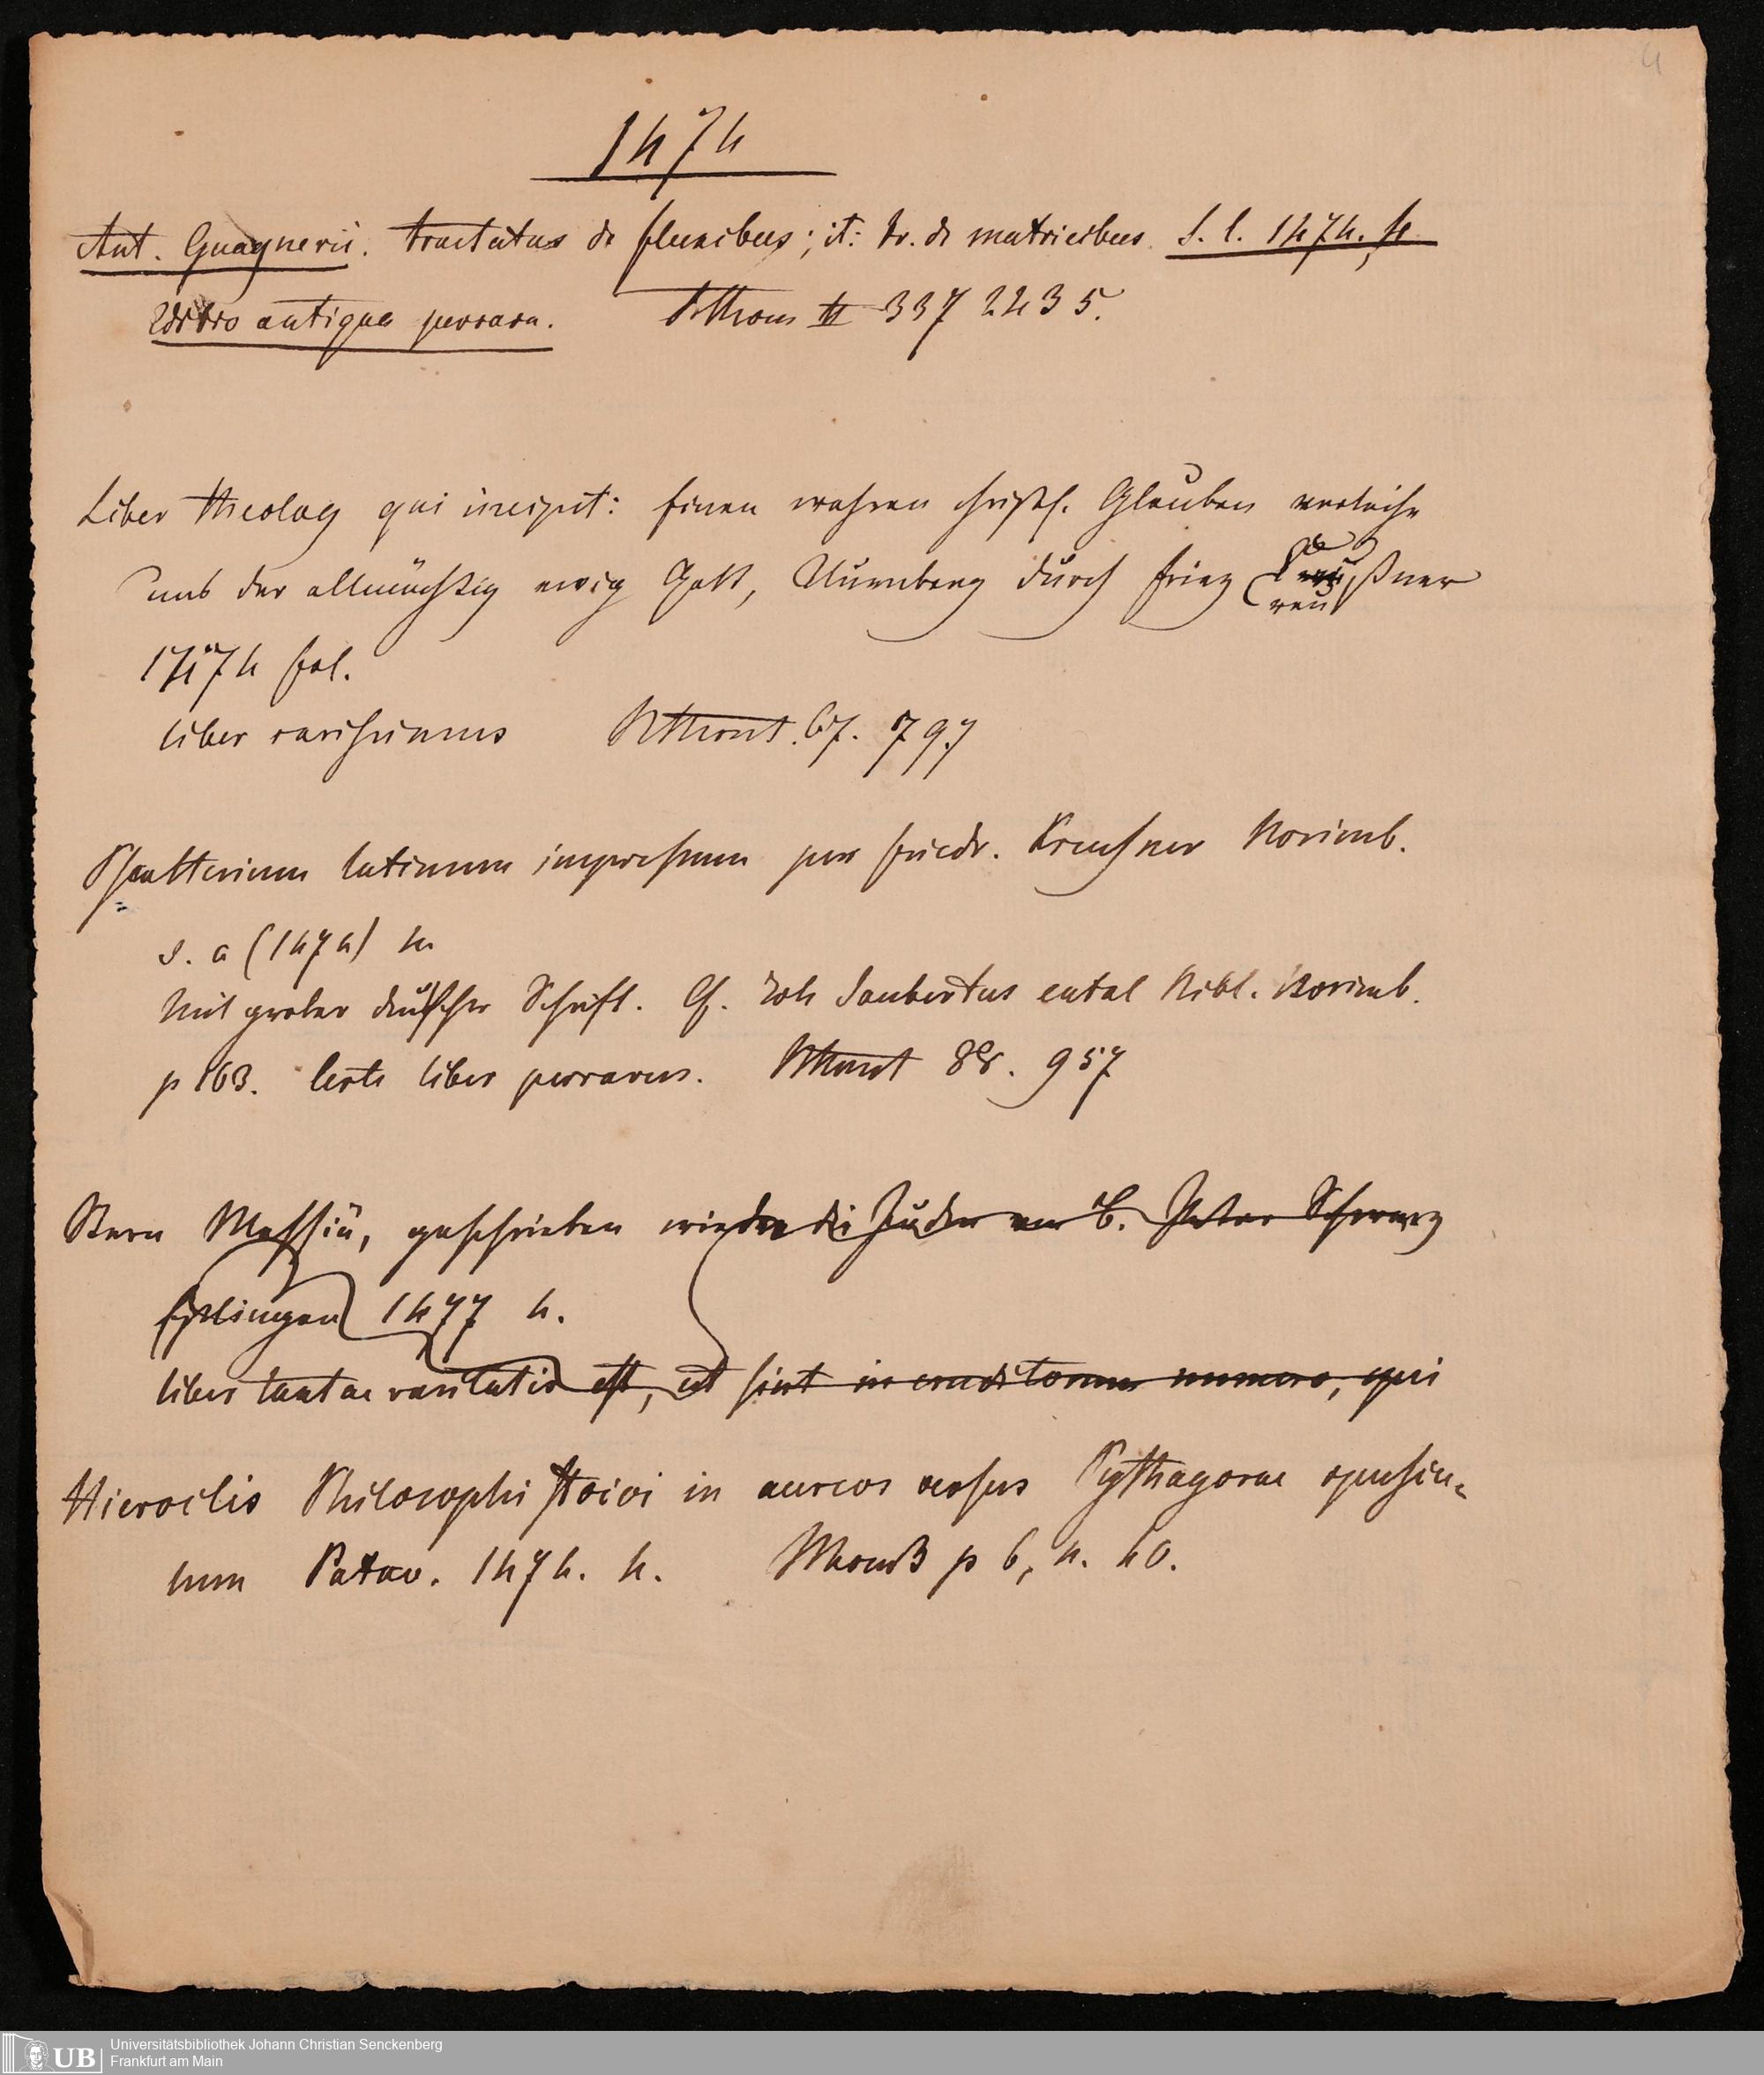 4
1474
Ant. Guagnerii. tractatus de fluxibus; it: tr. de matricibus. S. l. 1474. fo
Editio antiqua perrara. Uthous II 337 2235.
Liber theolog qui incipit: Einen wahren christl. Glauben verleihe
uns der allmächtig ewig Gott, Nurnberg durch Friez Creußner
1474 fol.
liber rarissimus 67. 797
Psalterium latinum impressum per Friedr. Kreusner Norimb.
s. a (1474) 4.
Mit grober deutscher Schrift. Cf. Joh Saubertus catal Bibl. Norimb.
p 163. Certe liber perrarus. 88. 957
Stern Messiä, geschrieben wieder die Juden von B. Peter Schwarz
Eßlingen 1477 4.
liber tantae raritatis est, ut sint in eruditorum numero, qui
Hieroclis Philosophi stoici in aureos versus Pythagorae opuscu-
lum Patav. 1474. 4. p 6, n. 40.
UB
Universitätsbibliothek Johann Christian Senckenberg
Frankfurt am Main